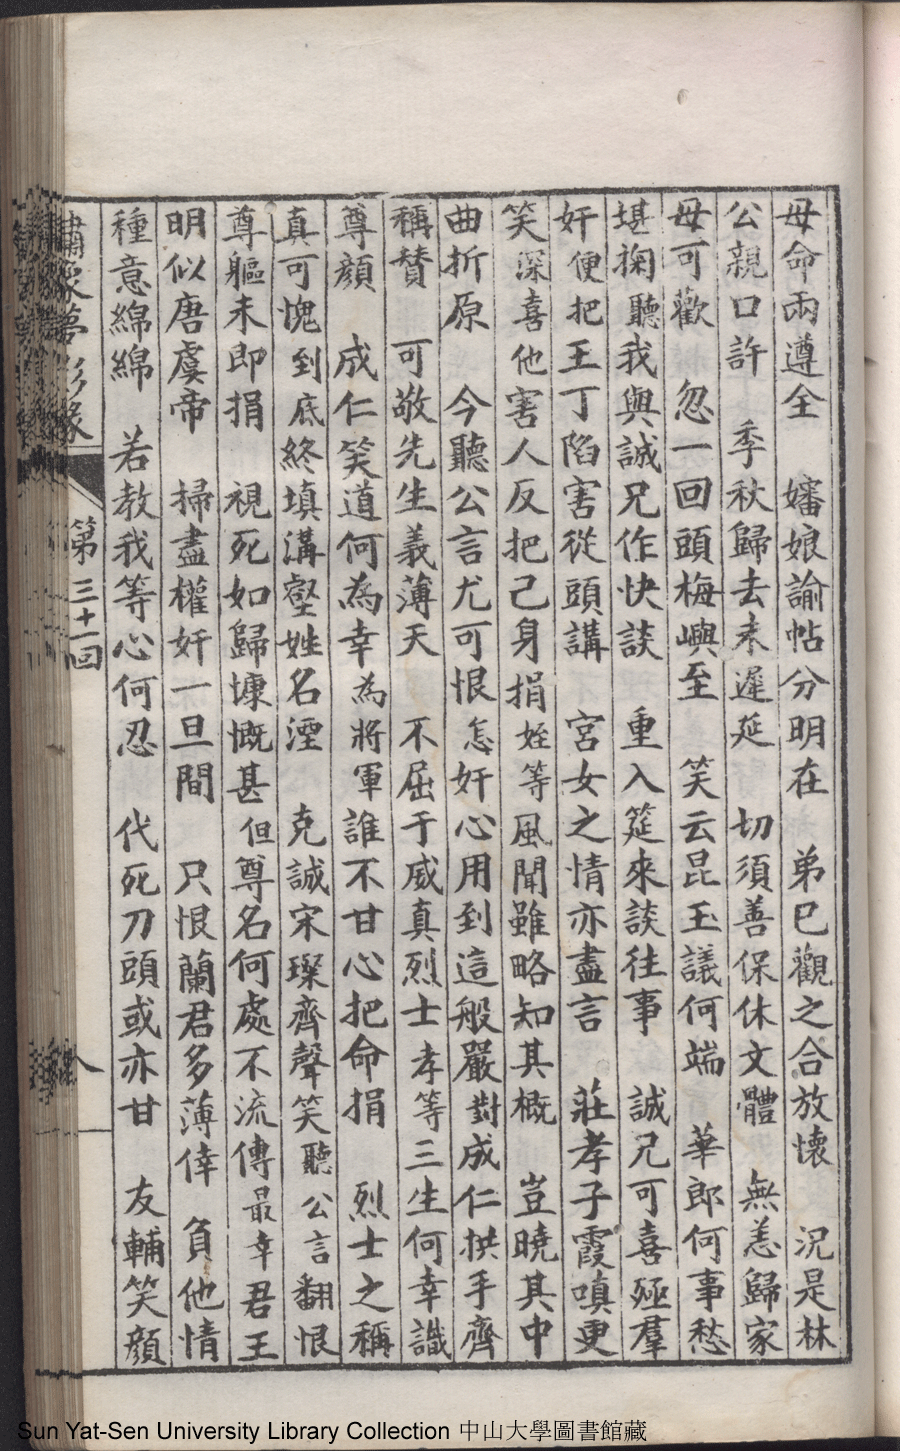 母命兩遵全　嬸娘諭帖分明在　弟已觀之合放懷　況是林
公親口許　季秋歸去未遲延　切須善保休文體　無恙歸家
母可歡　忽一回頭梅嶼至　笑云昆玉議何端　華郎何事愁
堪掬聽我與誠兄作快談　重入筵來談往事　誠兄可喜殛羣
奸便把王丁陷害從頭講　宮女之情亦盡言　莊孝子霞嗔更
笑深喜他害人反把己身捐姪等風聞雖略知其概　豈曉其中
曲折原　今聽公言尤可恨怎奸心用到這般嚴對成仁拱手齊
稱贊　可敬先生義薄天　不屈于威真烈士孝等三生何幸識
尊顏　成仁笑道何為幸為將軍誰不甘心把命捐　烈士之稱
真可愧到底終填溝壑姓名湮　克誠宋璨齊聲笑聽公言翻恨
尊軀未即捐　視死如歸慷慨甚但尊名何處不流傳最幸君王
明似唐虞帝　掃盡權奸一旦間　只恨蘭君多薄倖　負他情
種意綿綿　若教我等心何忍　代死刀頭或亦甘　友輔笑顏
夢影緣
第三十一回
八
Sun Yat-Sen University Library Collection 中山大學圖書館藏